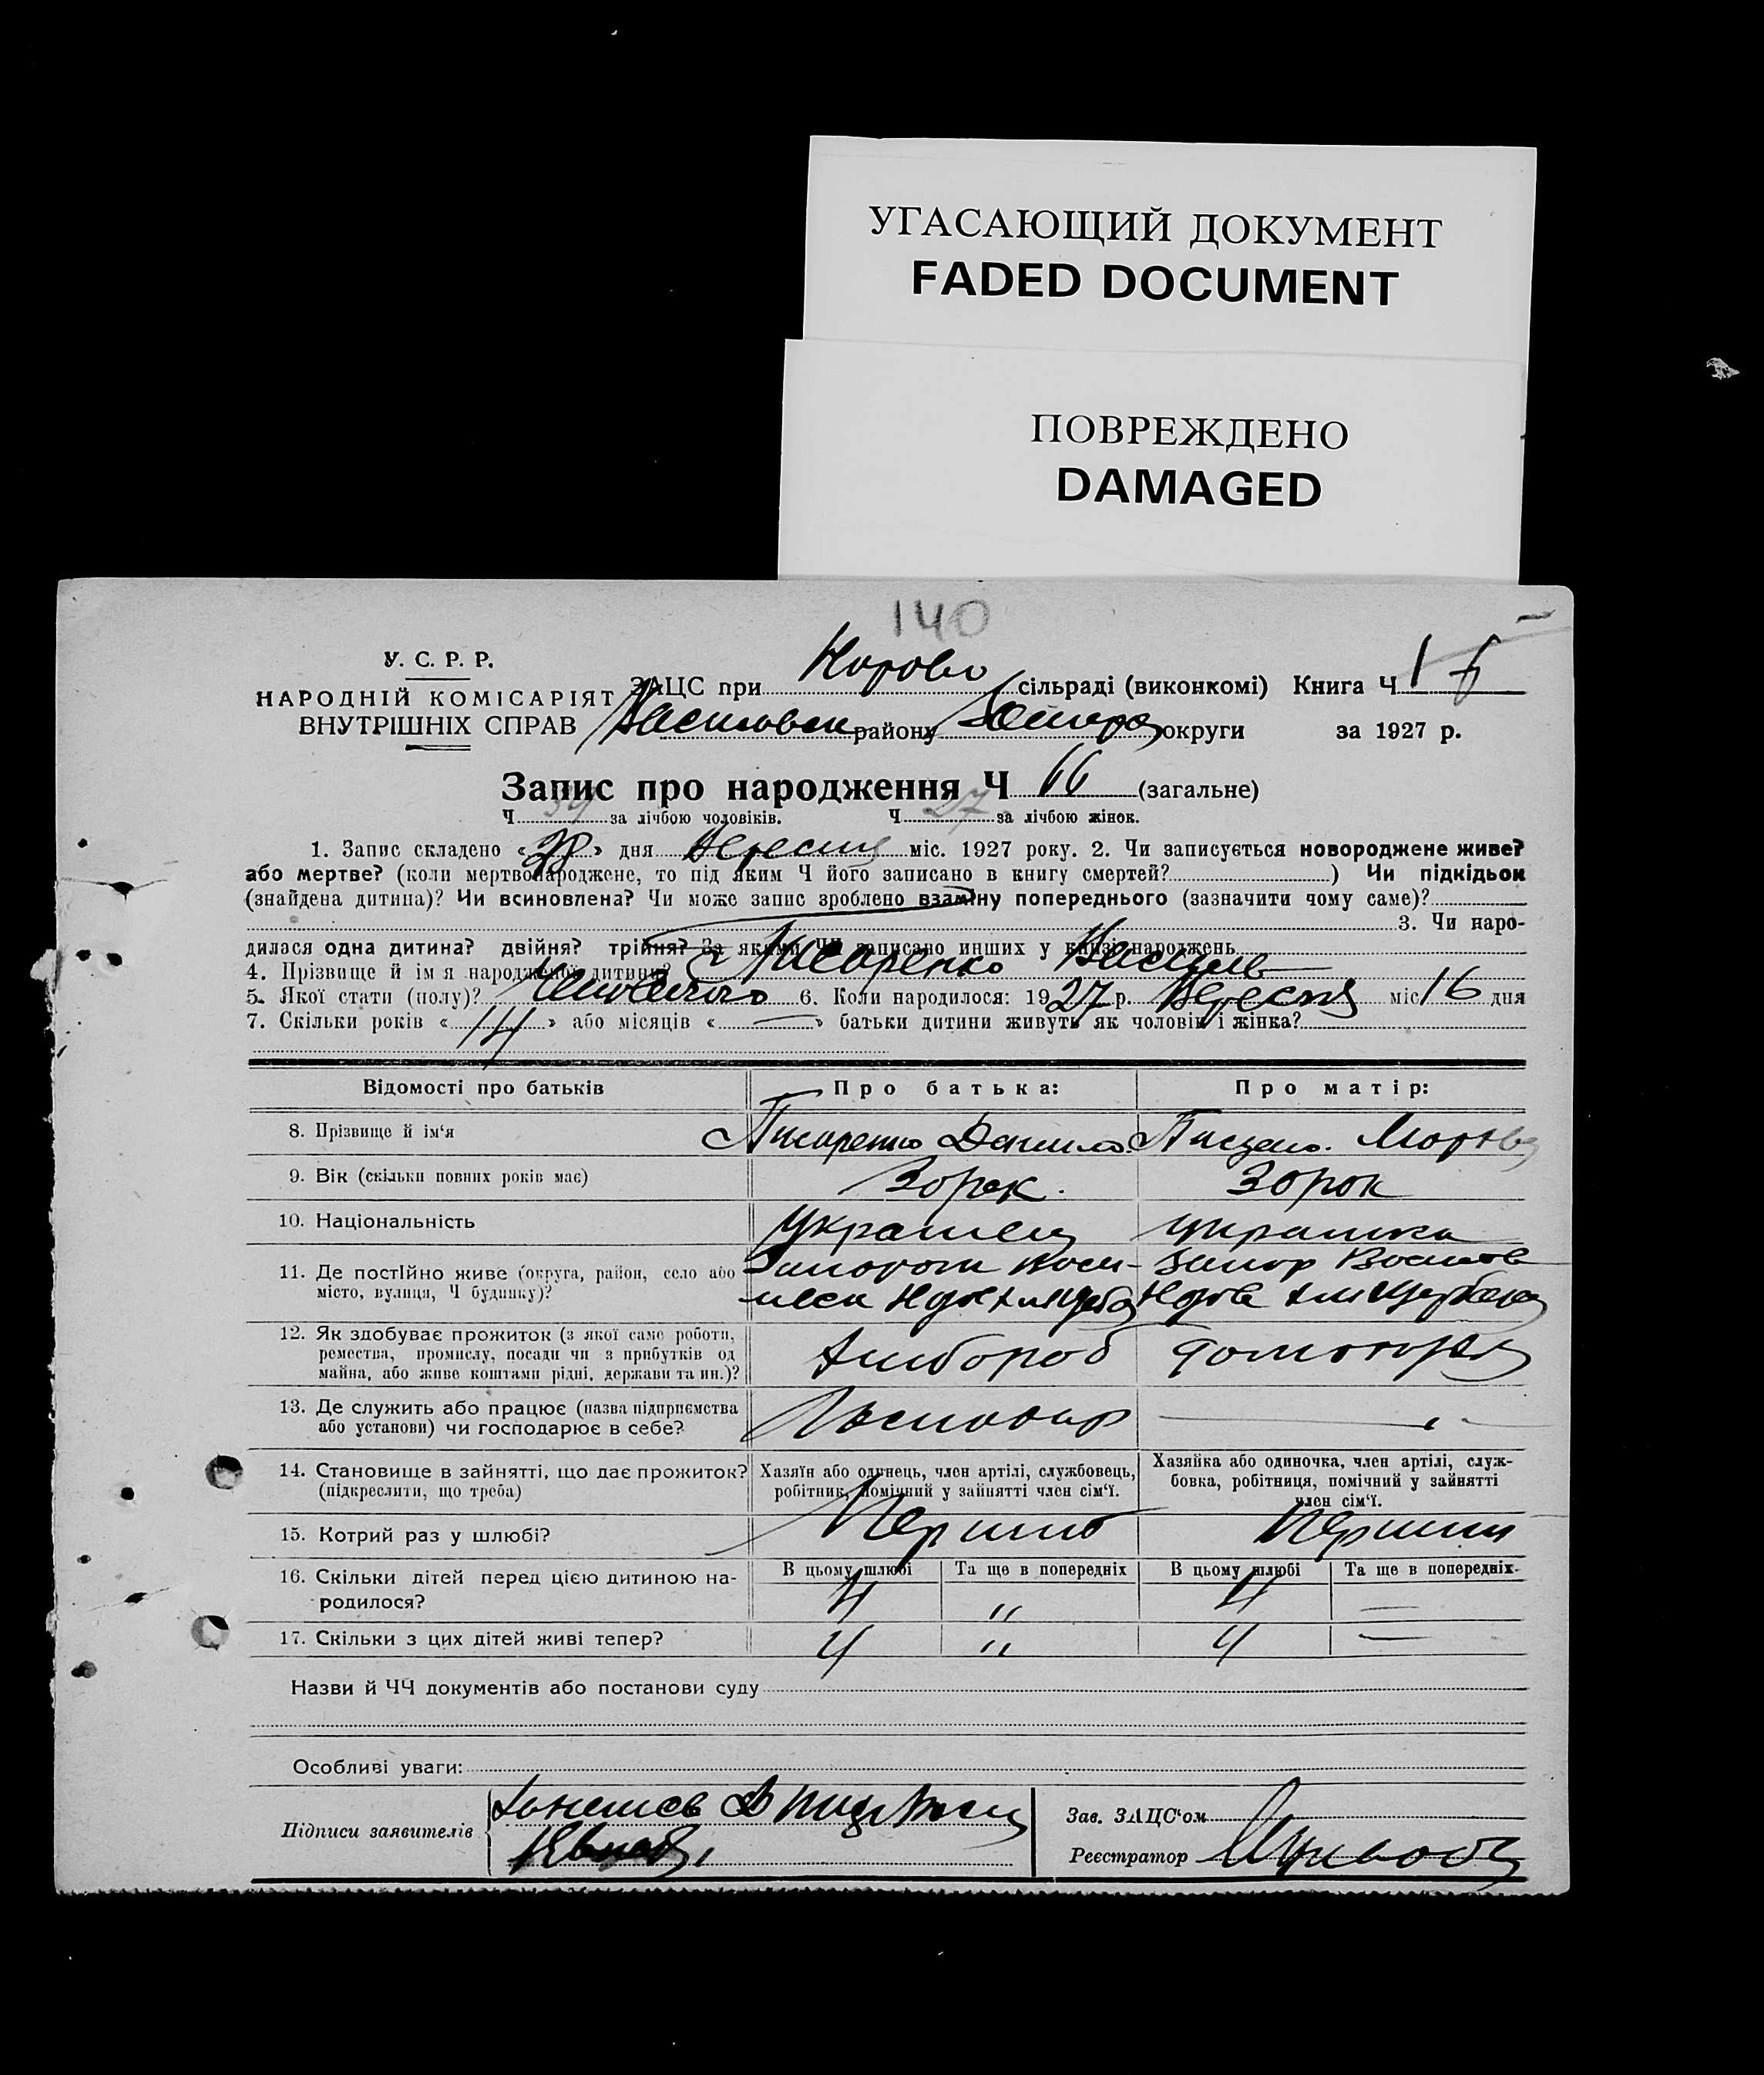 УГАСАЮЩИЙ ДОКУМЕНТ
FADED DOCUMENT
ПОВРЕЖДЕНО
DAMAGED
140
У. С. Р. Р.
НАРОДНІЙ КОМІСАРІЯТ
ВНУТРІШНІХ СПРАВ
ЗАЦС при сільраді (виконкомі) Книга Ч 1
району округи за 1927 р.
Запис про народження Ч 66 (загальне)
Ч 39 за лічбою чоловіків. Ч 27 за лічбою жінок.
1. Запис складено « 28 » дня Вересня міс. 1927 року. 2. Чи записується новороджене живе?
або мертве? (коли мертвонароджене, то під яким Ч його записано в книгу смертей? ) Чи підкідьок
(знайдена дитина)? Чи всиновлена? Чи може запис зроблено взаміну попереднього (зазначити чому саме)?
3. Чи наро-
дилася одна дитина? двійня? трійня? За якими ЧЧ записано инших у книзі народжень
4. Прізвище й ім'я народженої дитини? Писаренко Василь
5. Якої стати (полу)? 6. Коли народилося: 1927 р. Вересня міс 16 дня
7. Скільки років « 14 » або місяців « — » батьки дитини живуть як чоловік і жінка?
Відомості про батьків Про батька: Про матір:
8. Прізвище й ім'я Писаренко Данило Писарен.
9. Вік (скільки повних років має) 30 рок
10. Національність Украинец украинка
11. Де постійно живе (округа, район, село або
місто, вулиця, Ч будинку)?
12. Як здобуває прожиток (з якої саме роботи,
ремества, промислу, посади чи з прибутків од
майна, або живе коштами рідні, держави та ин.)? хлибороб
13. Де служить або працює (назва підприємства
або установи) чи господарює в себе? Господар —
14. Становище в зайнятті, що дає прожиток?
(підкреслити, що треба)
Хазяїн або одинець, член артілі, службовець,
робітник, помічний у зайнятті член сім'ї.
Хазяйка або одиночка, член артілі, служ-
бовка, робітниця, помічний у зайнятті
член сім'ї.
15. Котрий раз у шлюбі?
16. Скільки дітей перед цією дитиною на-
родилося?
В цьому шлюбі Та ще в попередніх В цьому шлюбі Та ще в попередніх
4 " 4 —
17. Скільки з цих дітей живі тепер? 4 " 4 —
Назви й ЧЧ документів або постанови суду
Особливі уваги:
Підписи заявителів
Зав. ЗАЦС'ом
Реєстратор